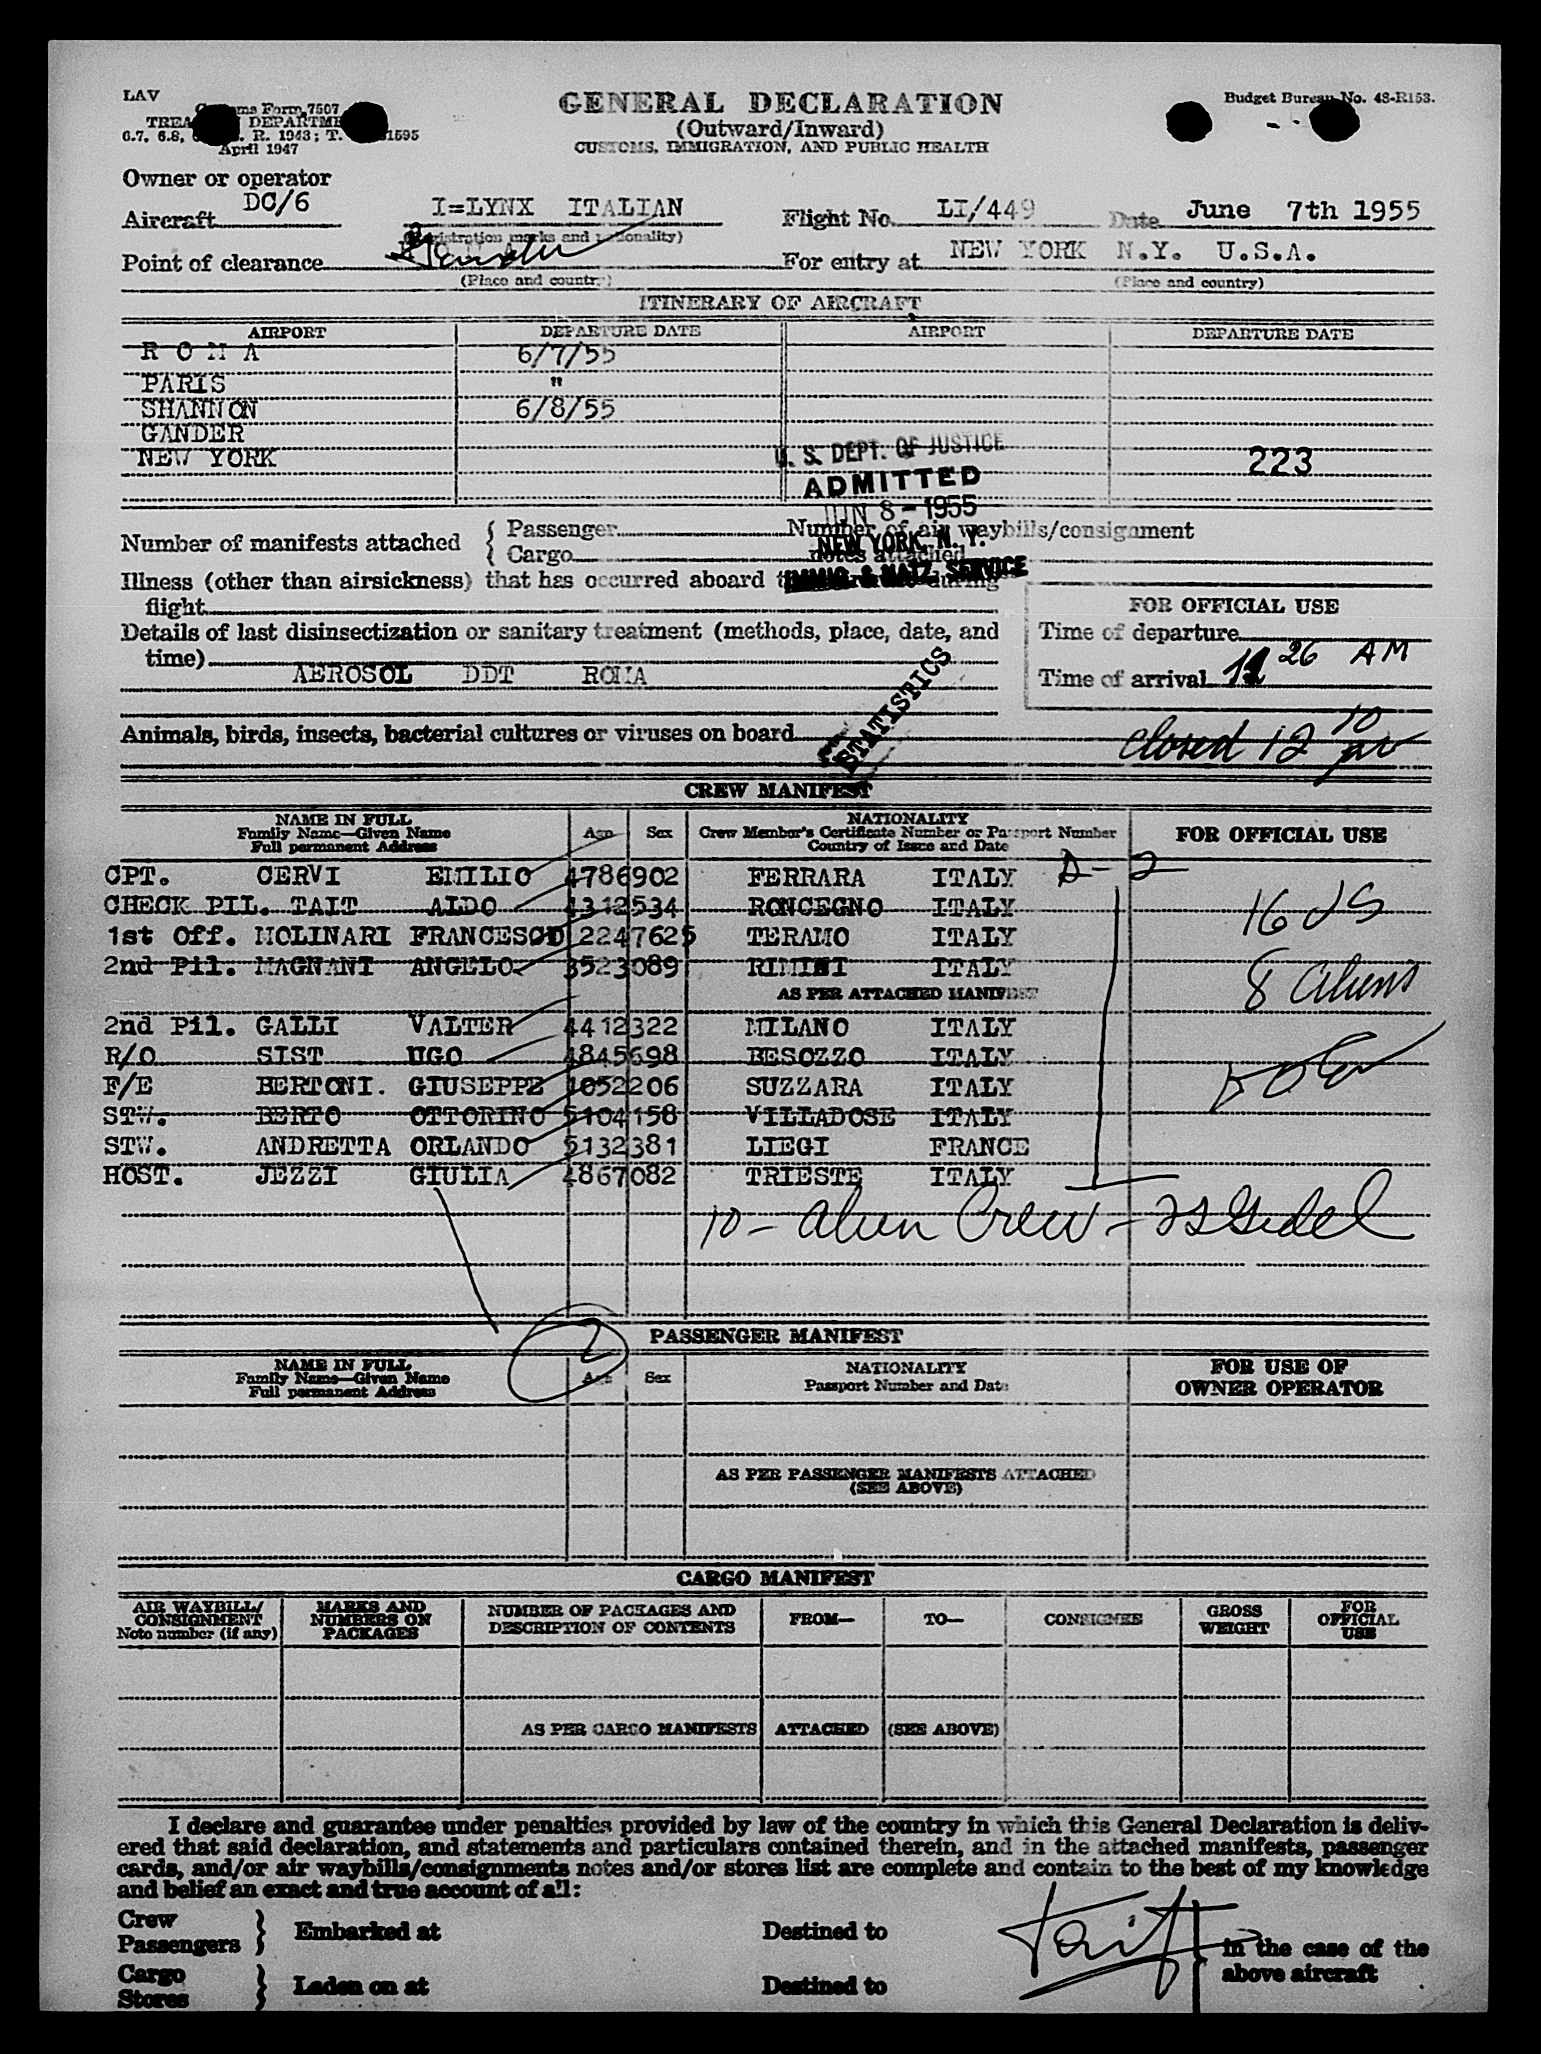 LAV
Customs Form 7507
TREASURY DEPARTMENT
6.7, 6.8, R. 1943; T. 1595
April 1947
GENERAL DECLARATION
(Outward/Inward)
CUSTOMS, IMMIGRATION, AND PUBLIC HEALTH
Budget Bureau No. 48-R153.
Owner or operator
Aircraft DC/6 I=LYNX ITALIAN Flight No. LI/449 Date June 7th 1955
(Registration marks and nationality)
Point of clearance For entry at NEW YORK N.Y. U.S.A.
(Place and country) (Place and country)
ITINERARY OF AIRCRAFT
AIRPORT DEPARTURE DATE AIRPORT DEPARTURE DATE
R O M A 6/7/55
PARIS "
SHANNON 6/8/55
GANDER
NEW YORK 223
U. S. DEPT. OF JUSTICE
ADMITTED
JUN 8 - 1955
NEW YORK, N. Y.
IMMIG. & NATZ. SERVICE
Number of manifests attached { Passenger Number of air waybills/consignment
Cargo notes attached
Illness (other than airsickness) that has occurred aboard during
flight
FOR OFFICIAL USE
Details of last disinsectization or sanitary treatment (methods, place, date, and
time)
Time of departure
AEROSOL DDT ROMA
Time of arrival 11 26 AM
STATISTICS
Animals, birds, insects, bacterial cultures or viruses on board
closed 12 10
CREW MANIFEST
NAME IN FULL
Family Name—Given Name
Full permanent Address
Age Sex
NATIONALITY
Crew Member's Certificate Number or Passport Number
Country of Issue and Date
FOR OFFICIAL USE
CPT. CERVI EMILIO 4786902 FERRARA ITALY D-2
CHECK PIL. TAIT ALDO 4312534 RONCEGNO ITALY
16 US
1st Off. MOLINARI FRANCESCO 2247625 TERAMO ITALY
2nd Pil. MAGNANI ANGELO 3523089 RIMINI ITALY
8 Aliens
AS PER ATTACHED MANIFEST
2nd Pil. GALLI VALTER 4412322 MILANO ITALY
R/O SIST UGO 4845698 BESOZZO ITALY
F/E BERTONI. GIUSEPPE 4052206 SUZZARA ITALY
STW. BERTO OTTORINO 5104158 VILLADOSE ITALY
STW. ANDRETTA ORLANDO 5132381 LIEGI FRANCE
HOST. JEZZI GIULIA 4867082 TRIESTE ITALY
10 - Alien Crew -
2
PASSENGER MANIFEST
NAME IN FULL
Family Name—Given Name
Full permanent Address
Age Sex
NATIONALITY
Passport Number and Date
FOR USE OF
OWNER OPERATOR
AS PER PASSENGER MANIFESTS ATTACHED
(SEE ABOVE)
CARGO MANIFEST
AIR WAYBILL/
CONSIGNMENT
Note number (if any)
MARKS AND
NUMBERS ON
PACKAGES
NUMBER OF PACKAGES AND
DESCRIPTION OF CONTENTS
FROM—
TO—
CONSIGNEE
GROSS
WEIGHT
FOR
OFFICIAL
USE
AS PER CARGO MANIFESTS ATTACHED (SEE ABOVE)
I declare and guarantee under penalties provided by law of the country in which this General Declaration is deliv-
ered that said declaration, and statements and particulars contained therein, and in the attached manifests, passenger
cards, and/or air waybills/consignments notes and/or stores list are complete and contain to the best of my knowledge
and belief an exact and true account of all:
Crew
Passengers } Embarked at Destined to
Tait
in the case of the
above aircraft
Cargo
Stores } Laden on at Destined to